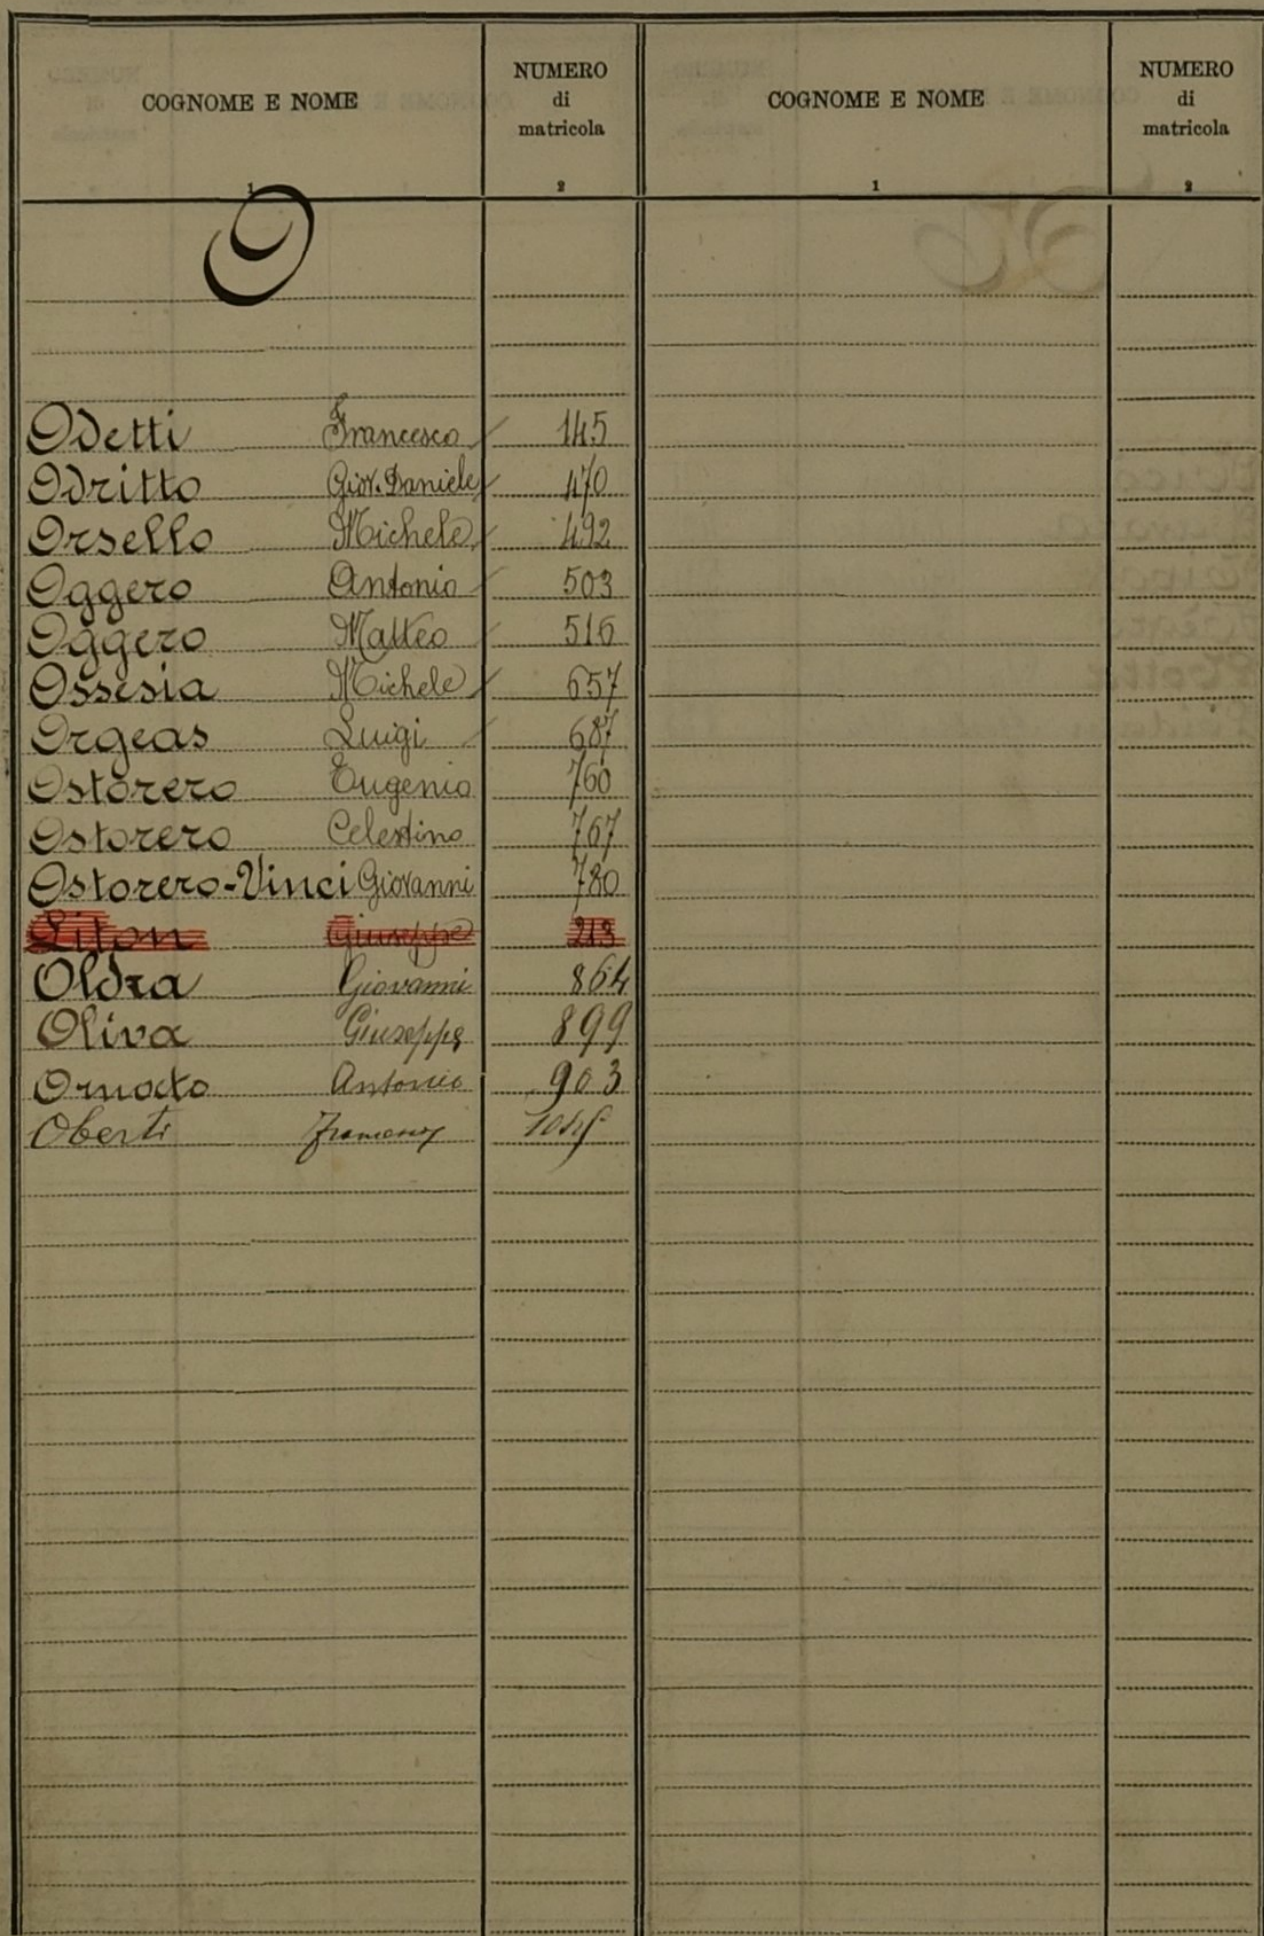 COGNOME E NOME NUMERO di matricola COGNOME E NOME NUMERO di matricola
1 2 1 2
O
Odetti Francesco 145
Odritto Giov. Daniele 470
Orsello Michele 492
Oggero Antonio 503
Oggero Matteo 516
Ossesia Michele 657
Orgeas Luigi 687
Ostorero Eugenio 760
Ostorero Celestino 767
Ostorero-Vinci Giovanni 780
Liton Giuseppe 213
Oldra Giovanni 864
Oliva Giuseppe 899
Ornato Antonio 903
Oberti